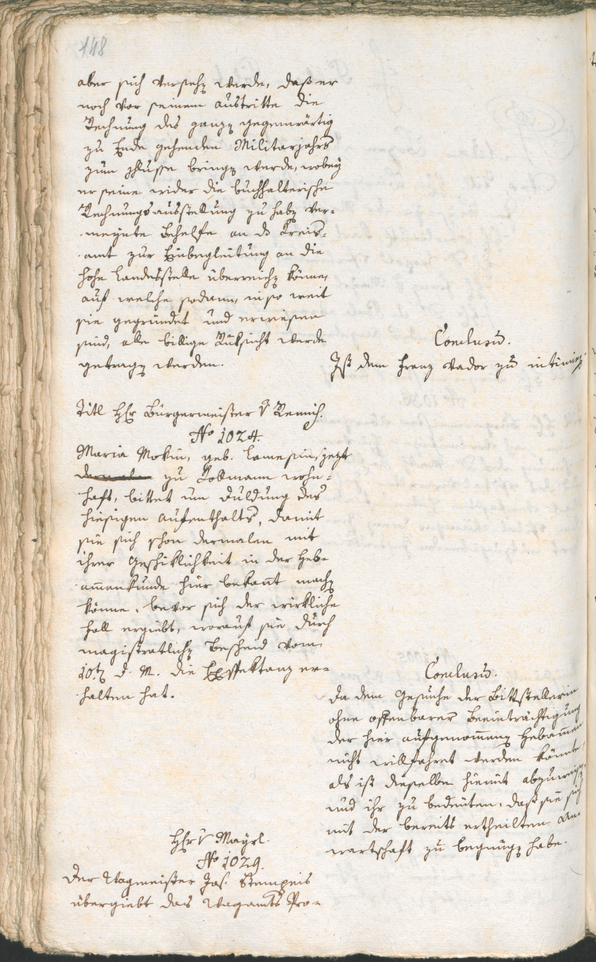 148
aber sich versehe werde, daß er
noch vor seinem austritte die
Rechnung des ganzen gegenwärtig
zu Ende gehenden Militarjahrs
zum schlusse bringe werde, wobey
er seine wider die buchhalterische
Rechnungsausstellung zu haben ver-
meynte behelfe an das Kreis-
amt zur Einbegleitung an die
hohe Landesstelle überreichen könne,
auf welche sodann, in so weit
sie gegründet und erwiesen
sind, alle billige Rüksicht werde
getragen werden.
Conclusum.
Ist dem Franz Vador zu intimiren.
Titl Hr Bürgermeister v Remich.
No 1024.
Maria Mokin, geb. Lamesin, jezt
zu Kollmann wohn-
haft, bittet um duldung des
hiesigen aufenthalts, damit
sie sich schon dermalen mit
ihrer Geschiklichkeit in der Heb-
ammenkunde hier bekannt machen
könne, bevor sich der wirkliche
fall ergiebt, worauf sie durch
magistratlichen bescheid vom
10ten d. M. die Exspektanz er-
halten hat.
Conclusum.
Da dem Gesuche der Bittstellerin
ohne offenbarer Beeinträchtigung
der hier aufgenommenen Hebammen
nicht willfahret werden könnte,
als ist dieselbe hiemit abzuweisen
und ihr zu bedeuten, daß sie sich
mit der bereits ertheilten An-
wartschaft zu begnügen habe.
Hr v Mayrl.
No 1029.
Der Wagmeister Jos. Stempeis
übergiebt das Wagamts Pro-